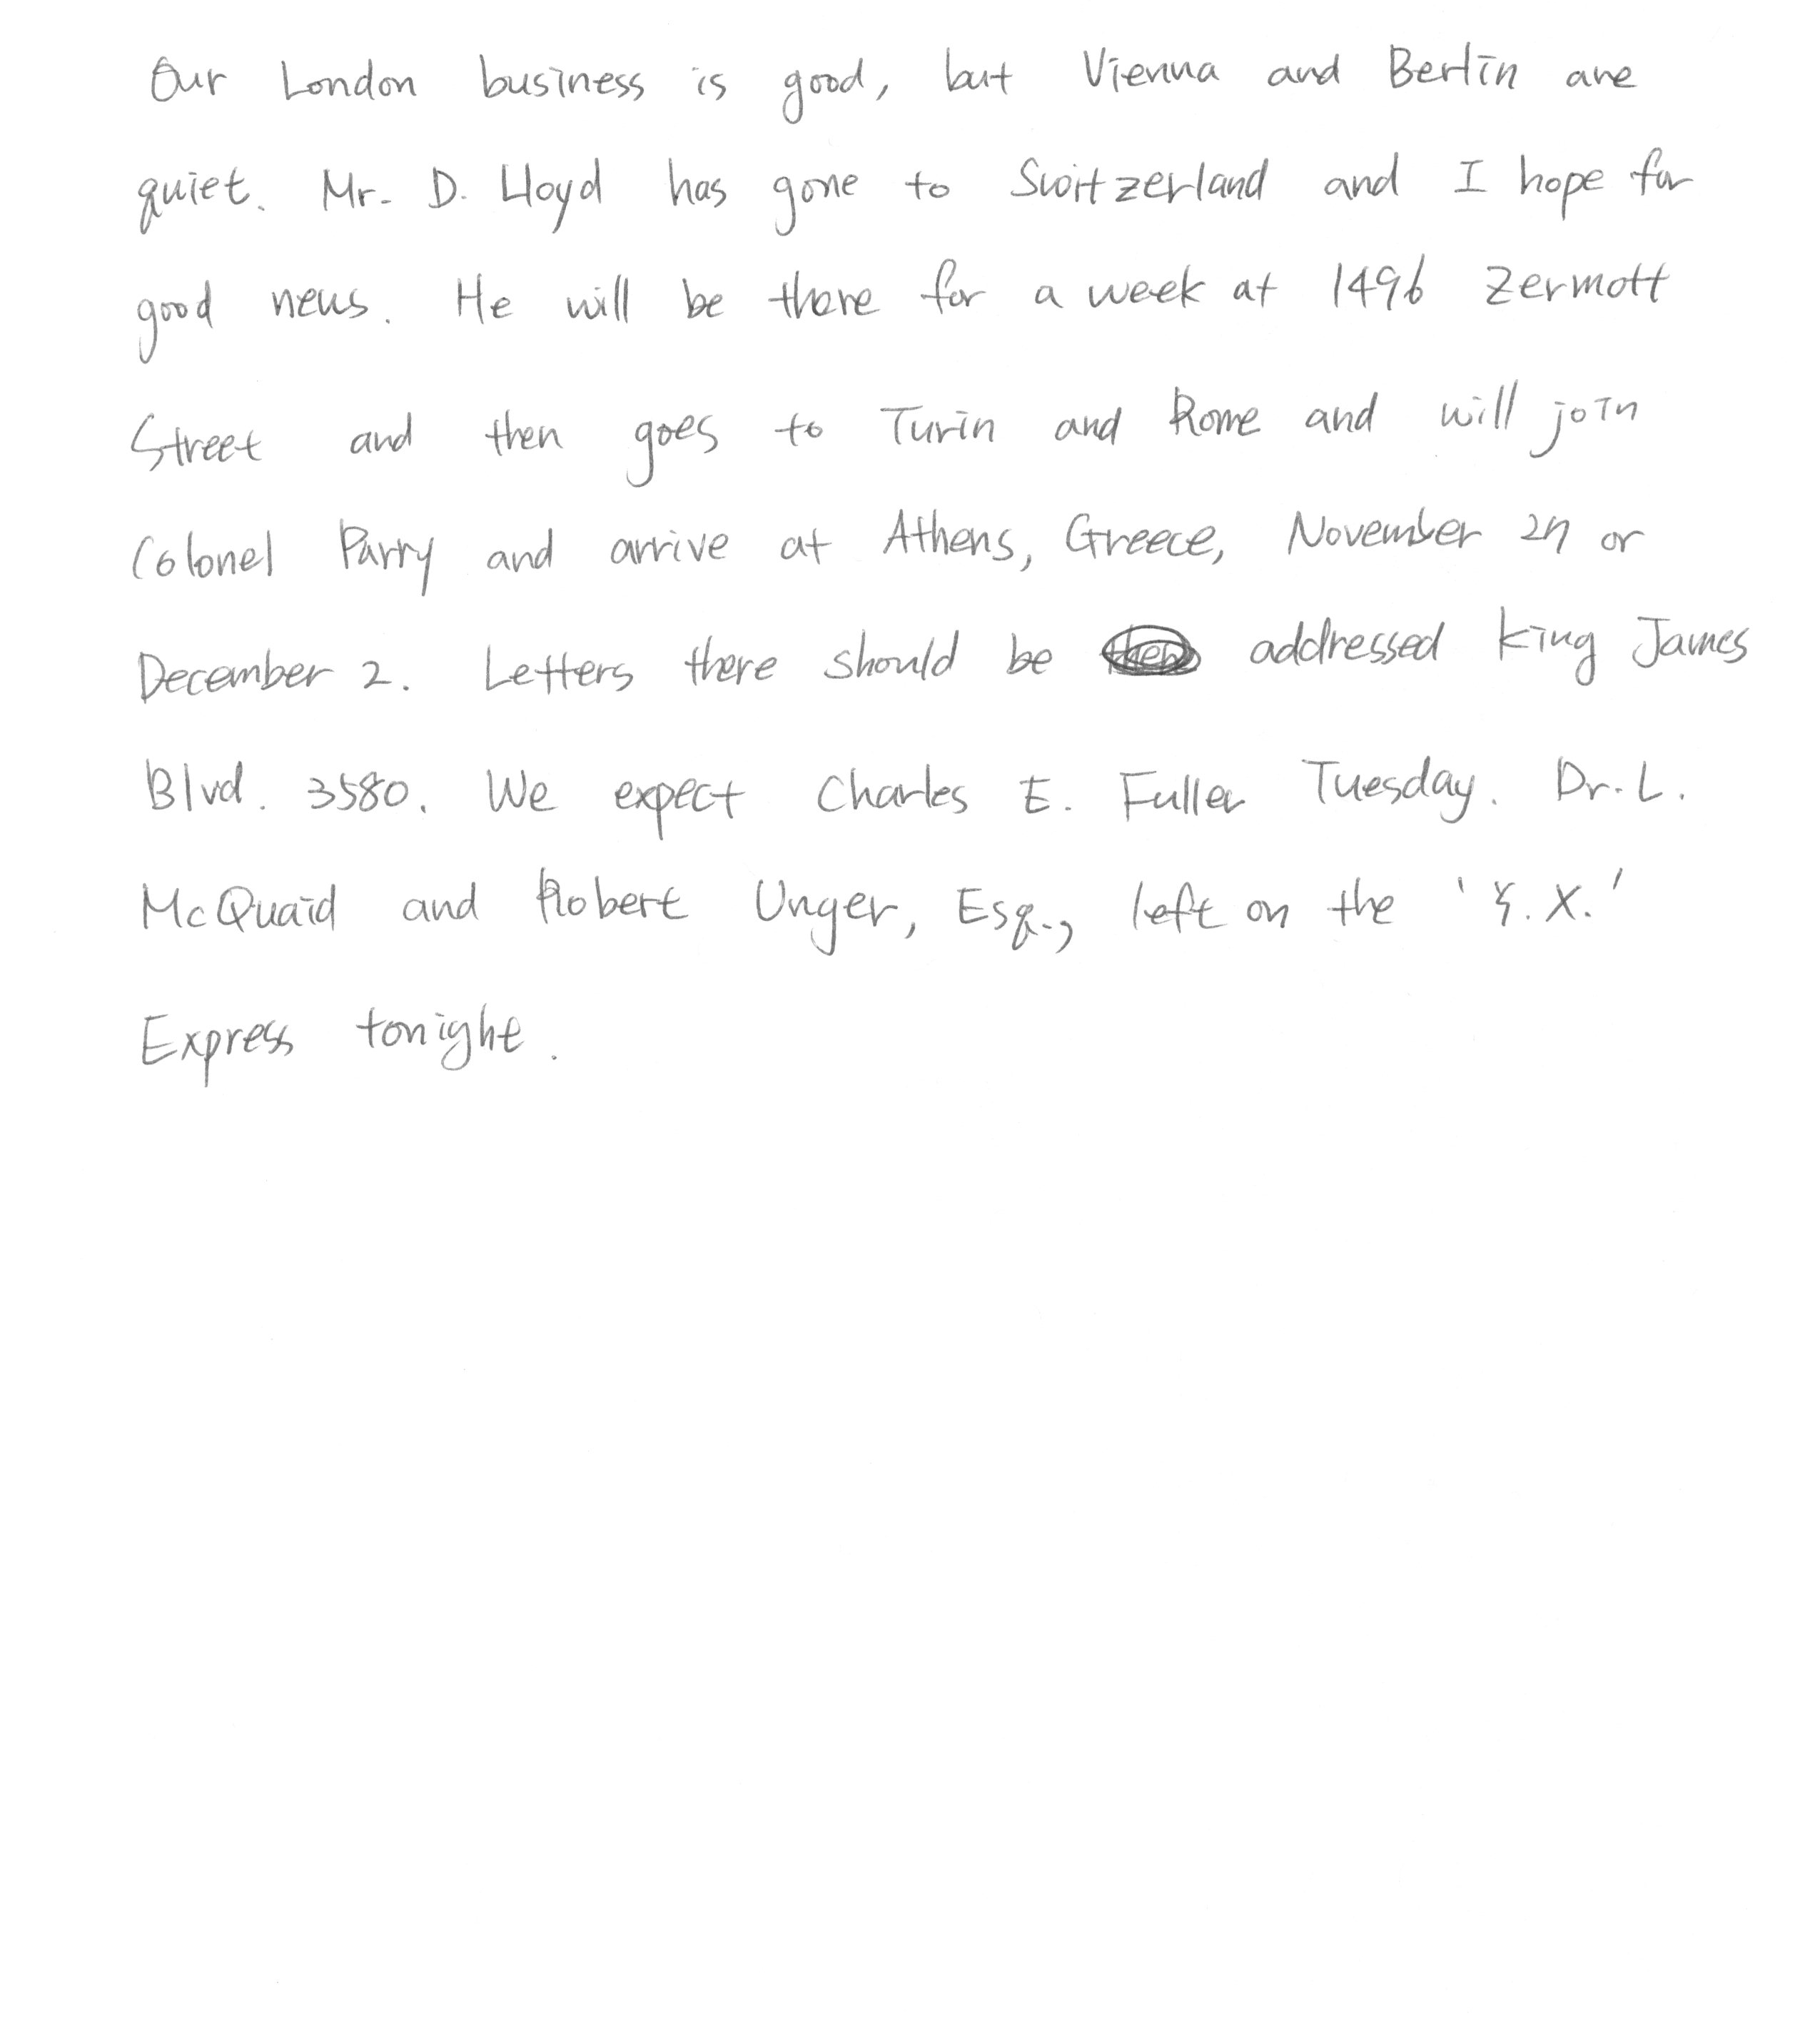 Our London business is good, but Vienna and Berlin are
quiet. Mr. D. Lloyd has gone to Switzerland and I hope for
good news. He will be there for a week at 1496 Zermott
Street and then goes to Turin and Rome and will join
Colonel Parry and arrive at Athens, Greece, November 27 or
December 2. Letters there should be addressed King James
Blvd. 3580. We expect Charles E. Fuller Tuesday. Dr. L.
McQuaid and Robert Unger, Esq., left on the 'Y.X.'
Express tonight.